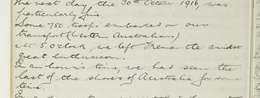 The next day, the 30th Octbr 1916, was
particularly fine.
Some 750 troops embarked on our
transport (Western Australians)
At 5 o'clock, we left Frema
great enthusiasm.
In an hour's time, we had seen the
last of the shores of Australia for some
time.